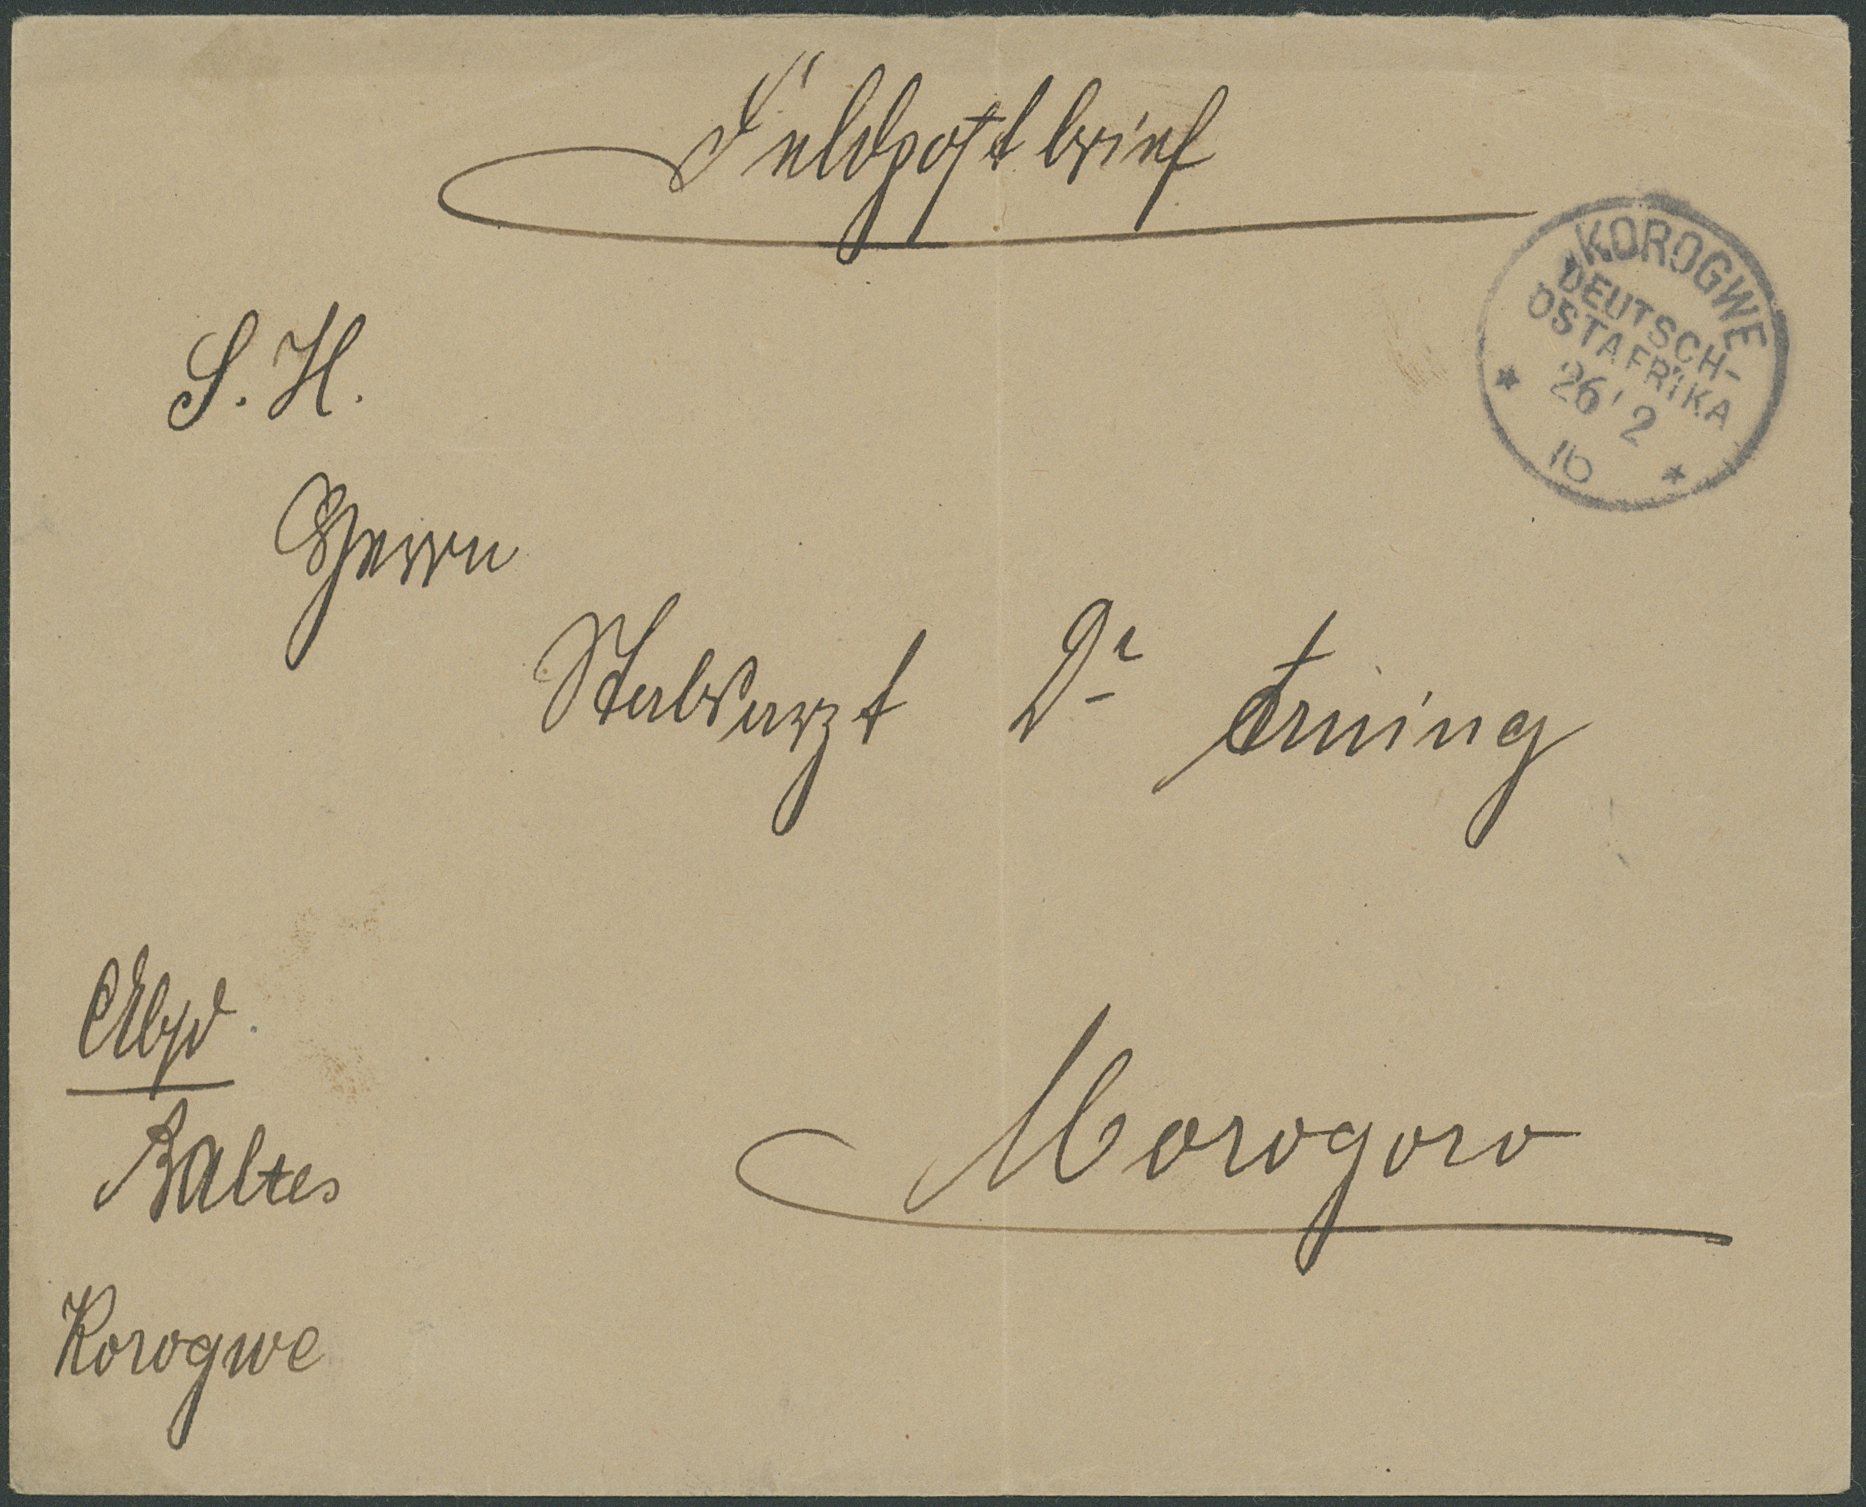 Feldpostbrief
KOROGWE
DEUTSCH-
OSTAFRIKA
26 2
16
S. H.
Herrn
Stabsarzt Dr
Absd.
Baltes
Morogoro
Korogwe